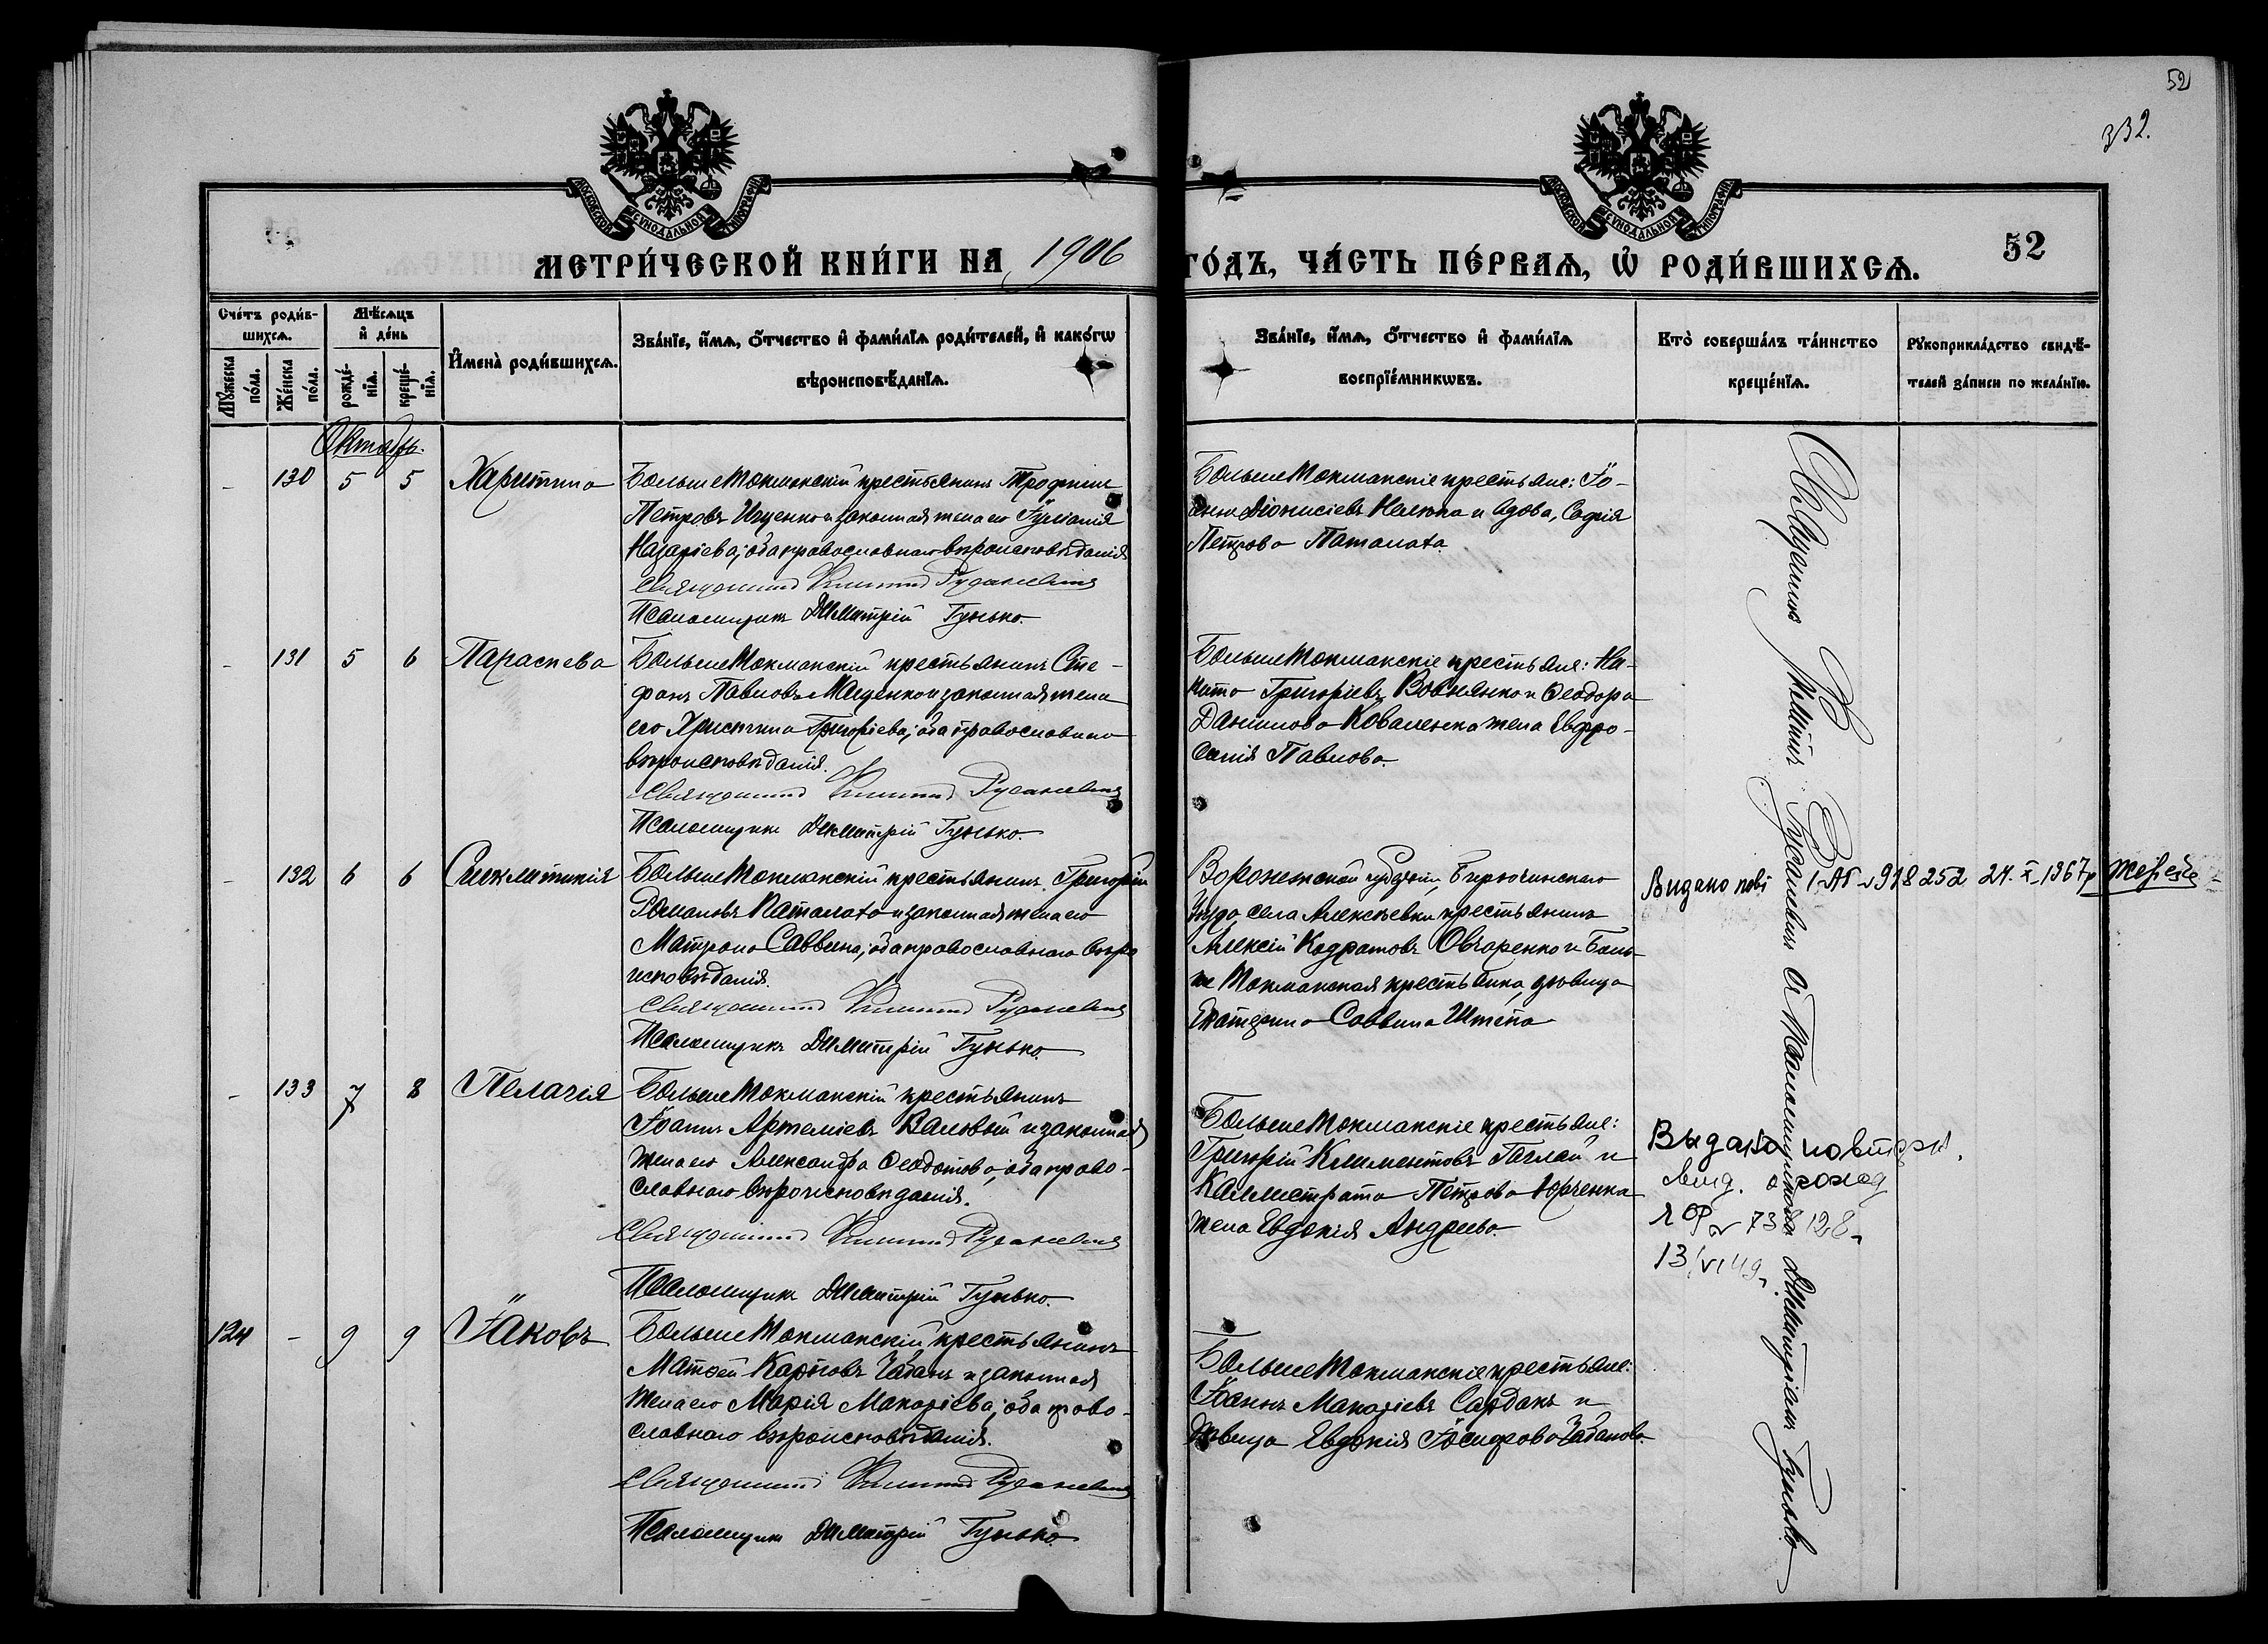 52
332.
МОСКОВСКОЙ СУНОДАЛЬНОЙ ТИПОГРАФІИ
МОСКОВСКОЙ СУНОДАЛЬНОЙ ТИПОГРАФІИ
МЕТРИ́ЧЕСКОЙ КНИ́ГИ НА 1906
ГО́ДЪ, ЧА́СТЬ ПЕ́РВАѦ, Ѽ РОДИ́ВШИХСѦ.
52
Сче́тъ роди́в-
шихсѧ.
Мꙋ́жеска по́ла.
Же́нска по́ла.
Мѣ́сѧцъ
и҆ де́нь
рожде́-
нїѧ.
креще́-
нїѧ.
И҆мена̀ роди́вшихсѧ.
Зва́нїе, и҆́мѧ, ѻ҆́тчество и҆ фамі́лїѧ роди́телей, и҆ како́гѡ
вѣроисповѣ́данїѧ.
Зва́нїе, и҆́мѧ, ѻ҆́тчество и҆ фамі́лїѧ
воспрїе́мникѡвъ.
Кто̀ соверша́лъ та́инство
креще́нїѧ.
Рꙋкоприкла́дство свидѣ́-
телей за́писи по жела́нїю.
Октябрь.
- 130 5 5 Харитина
Больше Токмакскій крестьянинъ Трофимъ
Петровъ Ищенко и законная жена его Іуліанія
Назаріева, оба православнаго вѣроисповѣданія
Священникъ Филиппъ Русаневичъ
Псаломщикъ Димитрій Гунько.
Больше Токмакскіе крестьяне: Іо-
аннъ Діонисіевъ и вдова, Софія
Петрова Паталата.
- 131 5 6 Параскева
Больше Токмакскій крестьянинъ Сте-
фанъ Павловъ Мащенко и законная жена
его Христина Григоріева, оба православнаго
вѣроисповѣданія.
Священникъ Филиппъ Русаневичъ
Псаломщикъ Димитрій Гунько.
Больше Токмакскіе крестьяне: Ни-
кита Григоріевъ Вовнянко и Ѳеодора
Данилова Коваленка жена Евфро-
синія Павлова.
- 132 6 6 Синклитикія
Больше Токмакскій крестьянинъ Григорій
Романовъ Паталата и законная жена его
Матрона Саввина, оба православнаго вѣро
исповѣданія.
Священникъ Филиппъ Русаневичъ
Псаломщикъ Димитрій Гунько.
Воронежской губерніи, Бирюченскаго
уѣзда села Алексѣевки крестьянинъ
Алексій Кодратовъ Овчаренко и Боль-
ше Токмакская крестьянка, дѣвица
Екатерина Саввина Штепа
Видано пові 1-АП №918252 24. X. 1967р
- 133 7 8 Пелагія
Больше Токмакскій крестьянинъ
Іоаннъ Артеміевъ Валовый и законная
жена его Александра Ѳеодотова, оба право-
славнаго вѣроисповѣданія.
Священникъ Филиппъ Русаневичъ
Псаломщикъ Димитрій Гунько.
Больше Токмакскіе крестьяне:
Григорій Климентовъ Гаглай и
Каллистрата Петрова Юрченка
жена Евдокія Андреева.
Выдано повторн.
свид. о рожд
№ 738128
13/VI 49
124 - 9 9 Іаковъ
Больше Токмакскій крестьянинъ
Матѳей Карповъ Чабанъ и законная
жена его Марія Макаріева, оба право-
славнаго вѣроисповѣданія.
Священникъ Филиппъ Русаневичъ
Псаломщикъ Димитрій Гунько.
Больше Токмакскіе крестьяне:
Іоаннъ Макаріевъ Сардакъ и
дѣвица Евдокія Іосифова Чабанова.
Священникъ Филиппъ Русаневичъ съ Псаломщикомъ Димитріемъ Гунько